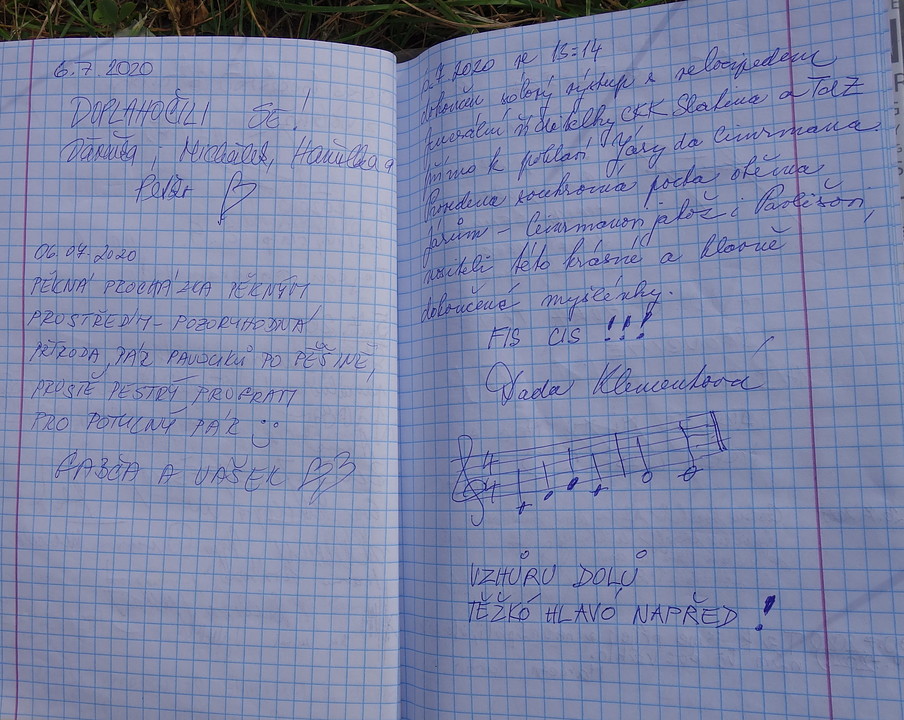 6.7.2020
DOPLAHOČILI SE!
Michálek, Hanička a
Petr
06.07.2020
PĚKNÁ PROCHÁZKA PĚKNÝM
PROSTŘEDÍM - POZORUHODNÁ
PŘÍRODA, PÁR PAVOUKŮ PO PĚŠINĚ,
PROSTĚ PESTRÝ PROGRAM
PRO POTULNÝ PÁR
A VAŠEK
7.2020 ve 13:14
dokončen sólový výstup s velocipedem
CKK Slatina a TdZ
přímo k poklasi Járy da Cimrmana.
Provdena soukromá pocta oběma
Járům - Cimrmanovi jakož i Pavlišovi,
nositeli této krásné a hlavně
dokončené myšlénky.
FIS CIS !!!
Klementová
4
4
VZHŮRU DOLŮ
TĚŽKÓ HLAVÓ NAPŘED!